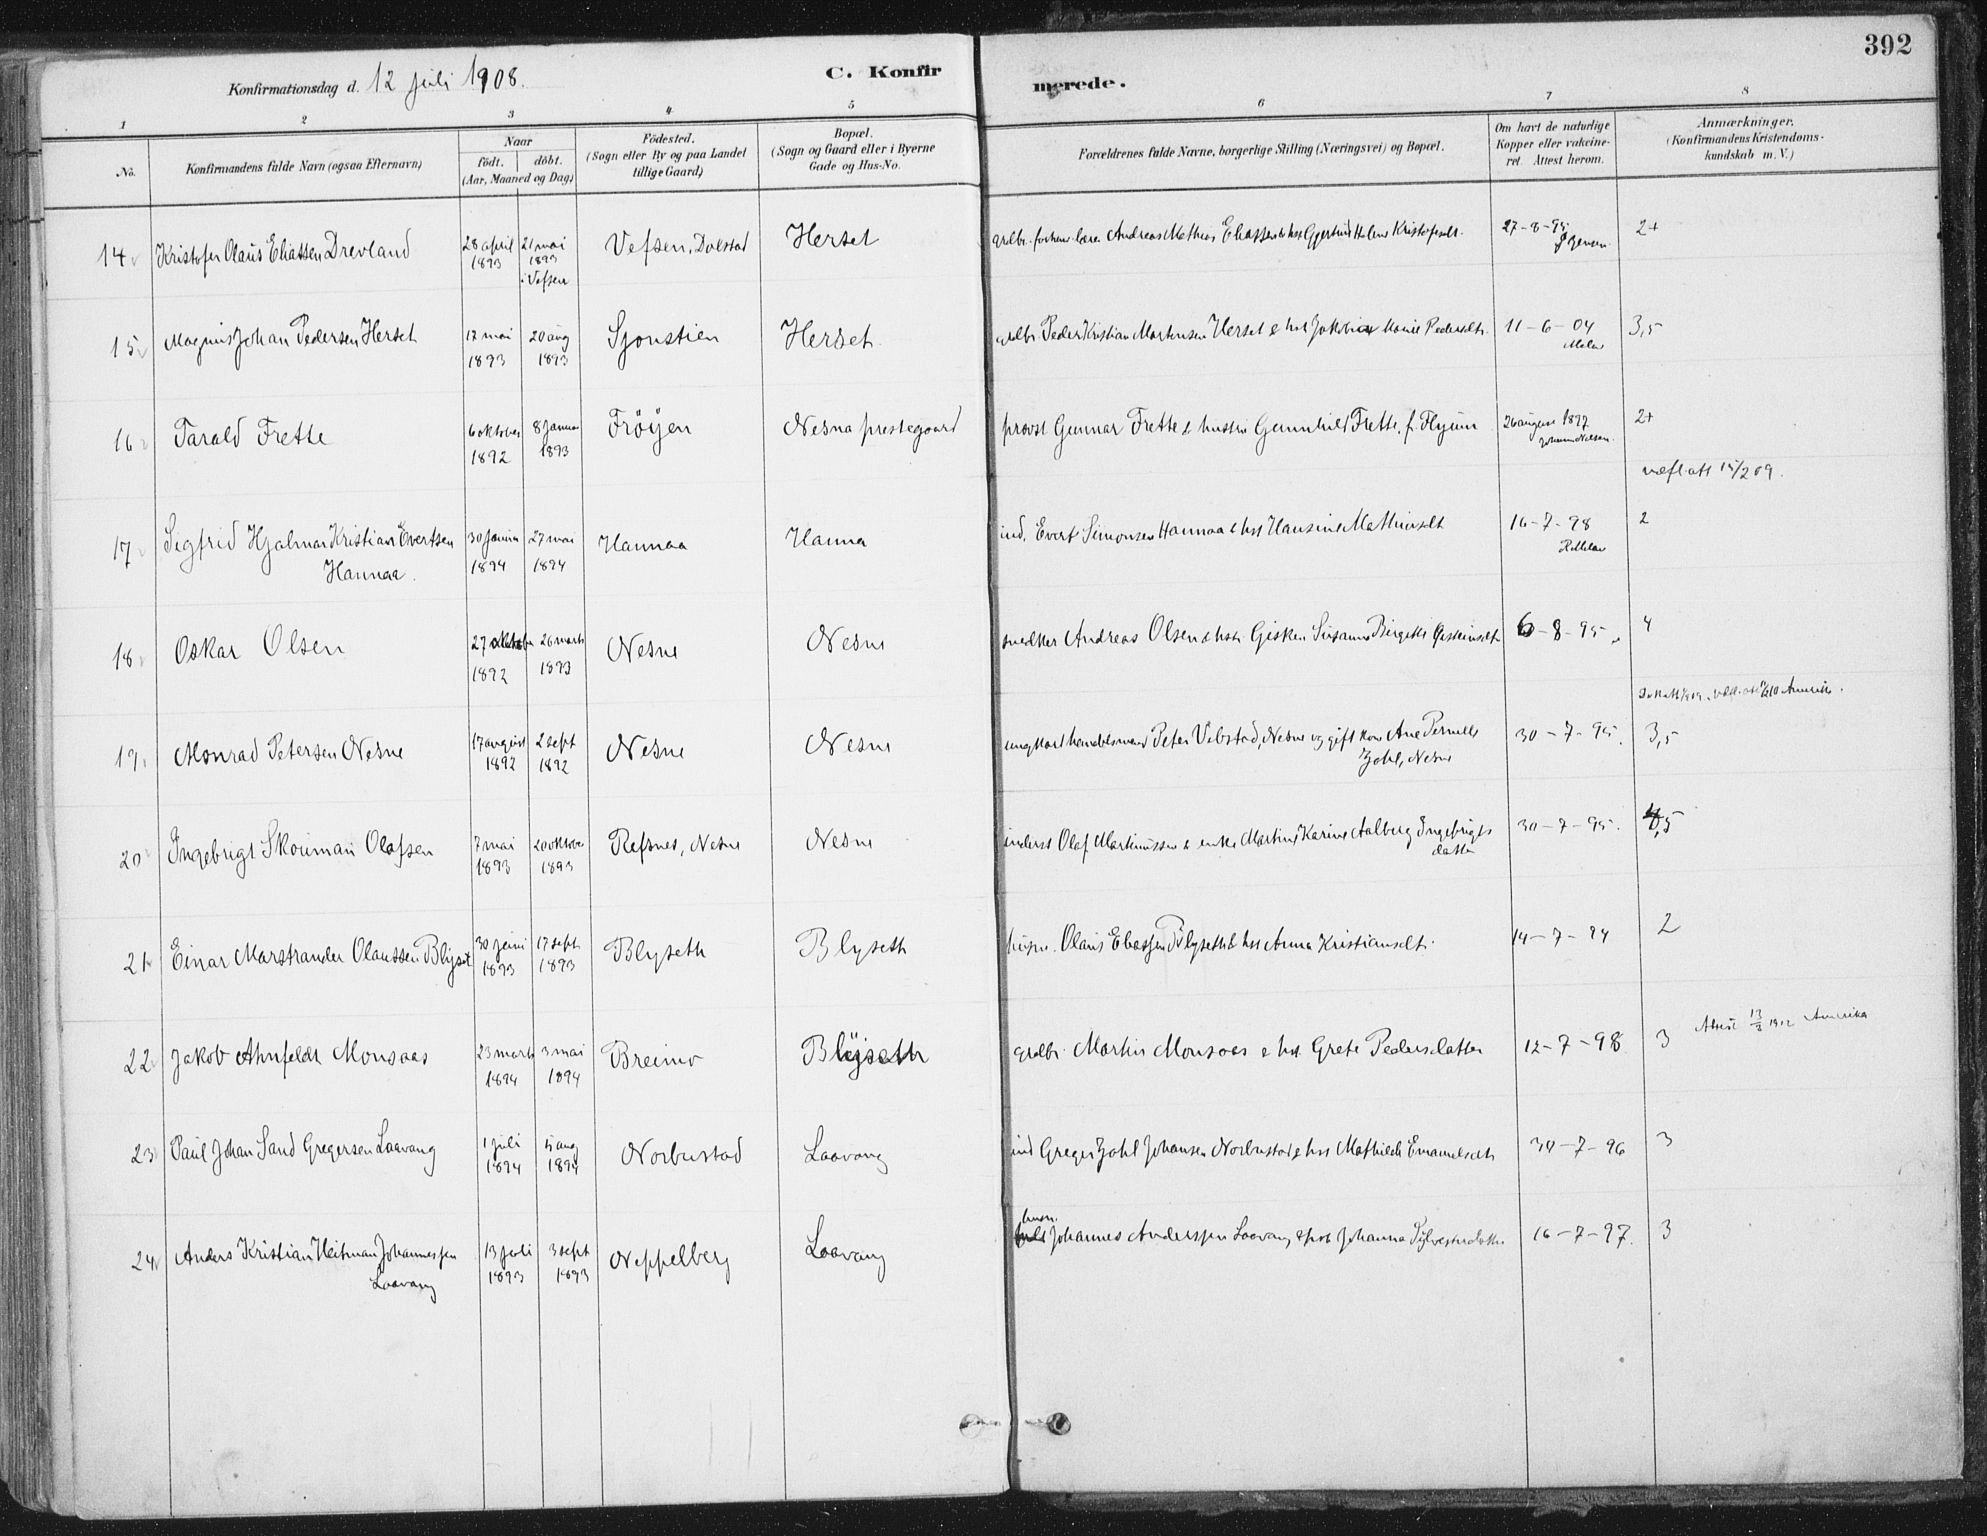 392
Konfirmationsdag d. 12 juli 1908.
C. Konfirmerede.
1 2 3 4 5 6 7 8
No.
Konfirmandens fulde Navn (ogsaa Efternavn)
Naar
födt. döbt.
(Aar, Maaned og Dag)
Födested.
(Sogn eller By og paa Landet
tillige Gaard)
Bopæl.
(Sogn og Gaard eller i Byerne
Gade og Hus-No.
Forældrenes fulde Navne, borgerlige Stilling (Næringsvei) og Bopæl.
Om havt de naturlige
Kopper eller vakcine-
ret. Attest herom.
Anmærkninger.
(Konfirmandens Kristendoms-
kundskab m. V.)
14 Kristofer Olaus Eliassen Drevland 28 april 1893 21 mai 1893 i Vefsen Vefsen, Dolstad Herset Andreas Mathias Eliassen & hst Gjertrud Helene Kristofersdt. 27-8-95 2+
15 Magnus Johan Pedersen Herset 17 mai 1893 20 aug 1893 Sjonstien Herset Peder Kristian Martensen Herset & hst Jakobine Marie Pedersdtr. 11-6-04 3,5
16 Tarald Frette 6 oktober 1892 8 januar 1893 Fröyen Nesna prestegaard provst Gunnar Frette & hustru Gunnhild Frette, f. Flyum 26 august 1897 2+
17 Sigfrid Hjalmar Kristian Evertsen 30 januar 1894 27 mai 1894 Hannaa Hanna ind. Evert Simonsen Hannaa & hst Hansine Mathiasdt 16-7-98 2
Hannaa.
18 Oskar Olsen 27 oktober 1892 26 marts 1893 Nesne Nesne snedker Andreas Olsen & hst. Gisken Susanne Birgitte 6-8-95 4
Amerika.
19 Monrad Petersen Nesne 17 august 1892 2 sept 1892 Nesne Nesne ungkarl handelsmand Peter Vebstad, Nesne og gift kone Ane Pernille 30-7-95. 3,5
Zahl, Nesne
20 Ingebrigt Skouman Olafsen 7 mai 1893 20 oktober 1893 Refsnes, Nesne Nesne inderst Olaf Martinussen & enke Martine Karine Aalberg Ingebrigts 30-7-95.
datter
21 Einar Marstrander Olaussen Blyset 30 juni 1893 17 sept 1893 Blyseth Blyseth husm. Olaus Eliassen Blyseth & hst Anna Kristiansdt. 14-7-94 2
22 Jakob Ahnfeldt Monsaas 23 marts 1894 3 mai 1894 Breimo Blyseth grdbr. Martin Monsaas & hst. Grete Pedersdatter 12-7-98 3 Attest 13/2 1912 Amerika
23 Paul Johan Sand Gregersen Laavang 1 juli 1894 5 aug 1894 Norbustad Laavang ind Greger Zahl Johansen Norbustad & hst Mathilde Emanuelsdt. 30-7-96 3
24 Anders Kristian Heitman Johannessen 13 juli 1893 3 sept 1893 Neppelberg Laavang husm. Johannes Anderssen Laavang & hst Johanna Sylvesterdatter 16-7-97. 3
Laavang